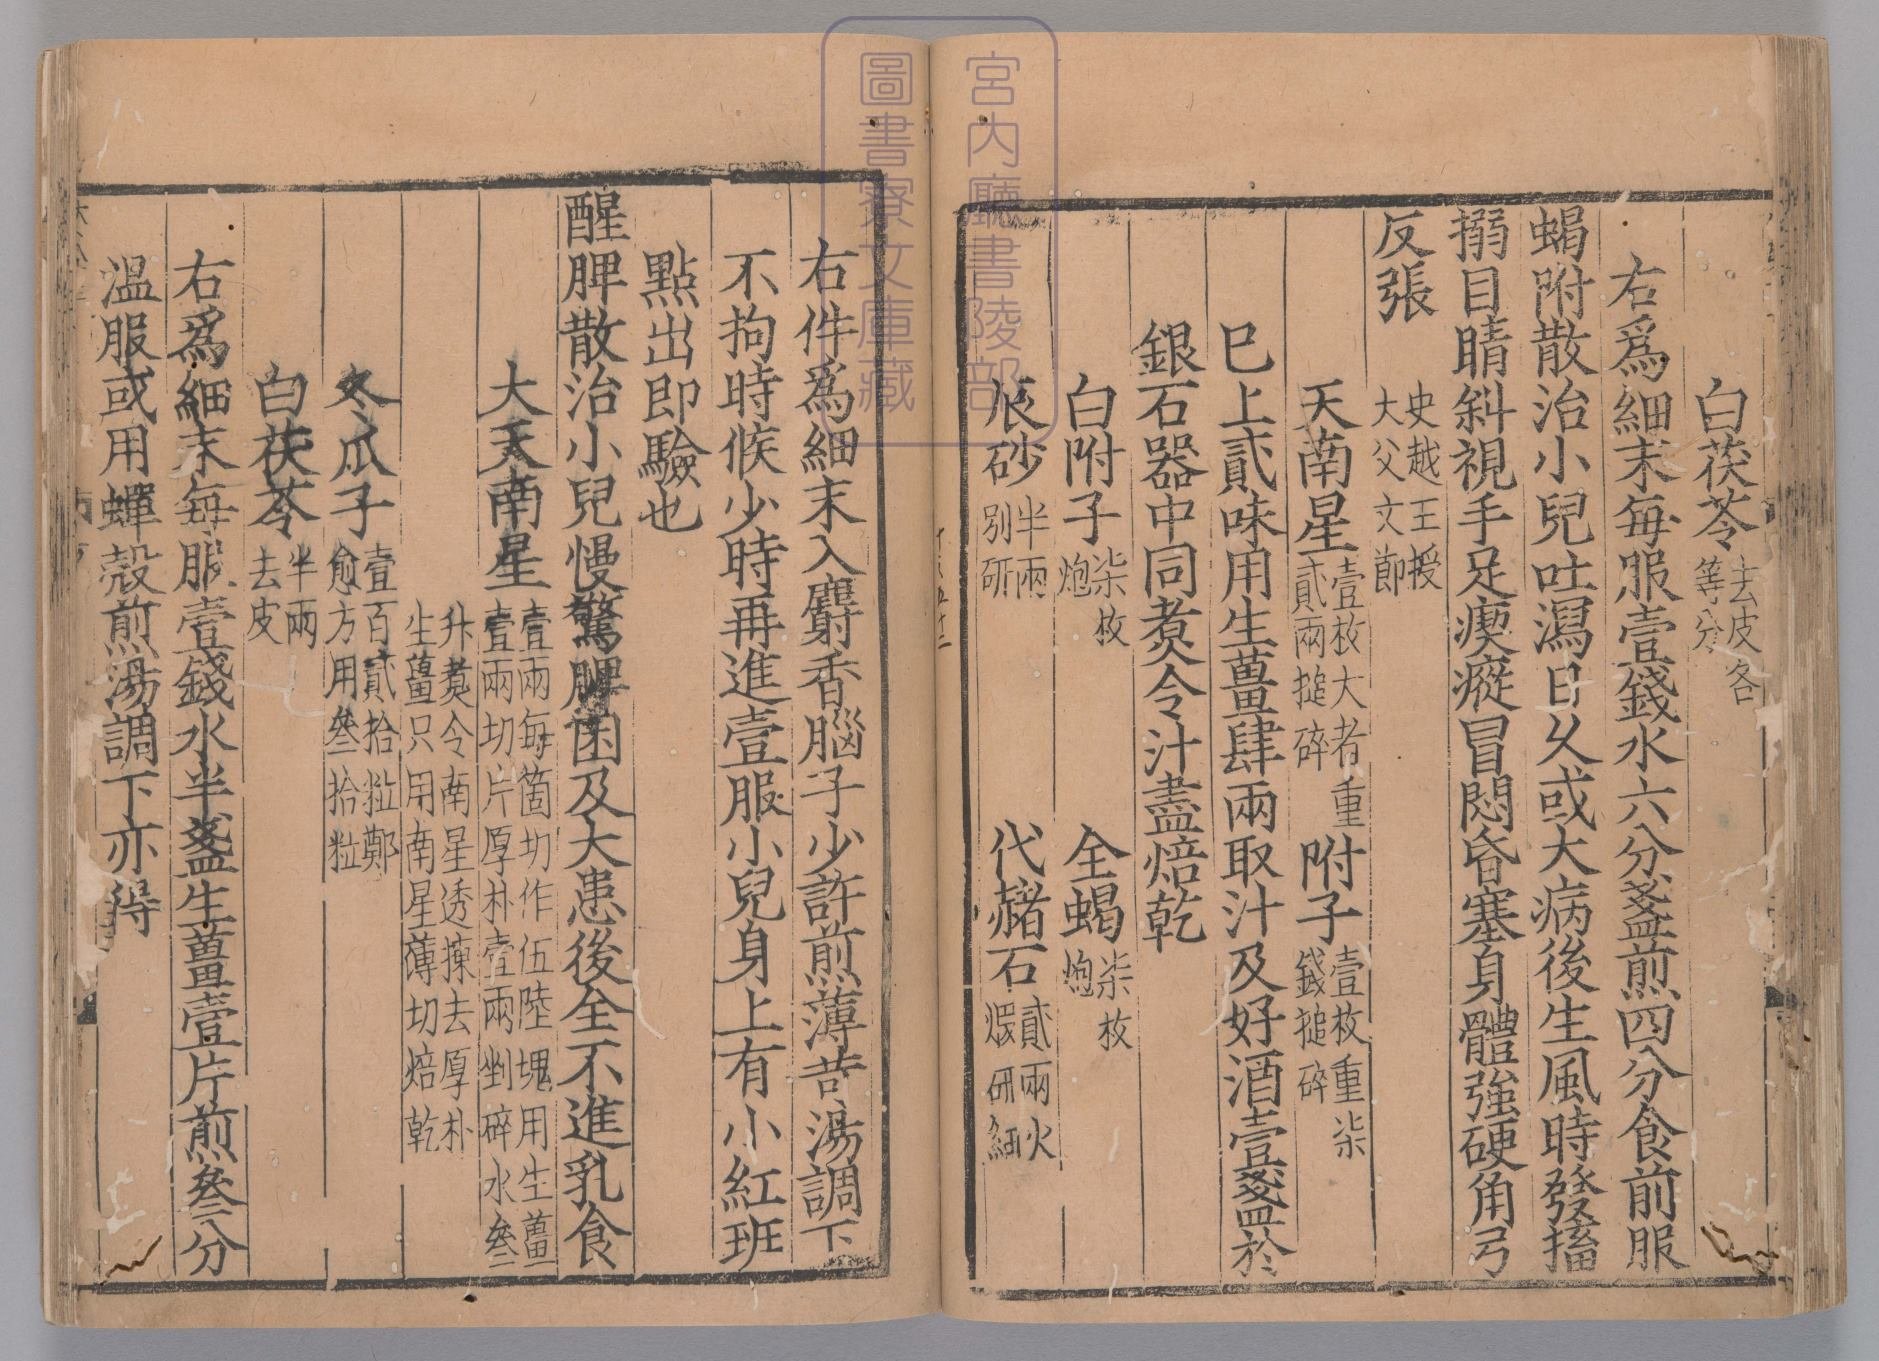 白茯苓去皮各等分
右爲細末每服壹錢水六分盞煎四分食前服
蝎附散治小兒吐瀉日久或大病後生風時發搐
搦目睛斜視手足瘈瘲冒悶昏塞身體強硬角弓
反張史越王授大父文節
天南星壹枚大者重貳兩搥碎 附子壹枚重柒錢搥碎
巳上貳味用生薑肆兩取汁及好酒壹盞於
銀石器中同煮令汁盡焙乾
白附子柒枚炮 全蝎柒枚炮
辰砂半兩別研 代赭石貳兩火煅研細
右件爲細末入麝香腦子少許煎薄荷湯調下
不拘時候少時再進壹服小兒身上有小紅班
點出即驗也
醒脾散治小兒慢驚脾困及大患後全不進乳食
大天南星壹兩每箇切作伍陸塊用生薑壹兩切片厚朴壹兩剉碎水叄
升煮令南星透揀去厚朴生薑只用南星薄切焙乾
冬瓜子壹百貳拾粒鄭愈方用叄拾粒
白茯苓半兩去皮
右爲細末每服壹錢水半盞生薑壹片煎叄分
溫服或用蟬殼煎湯調下亦得
宮内廳書陵部
圖書寮文庫藏